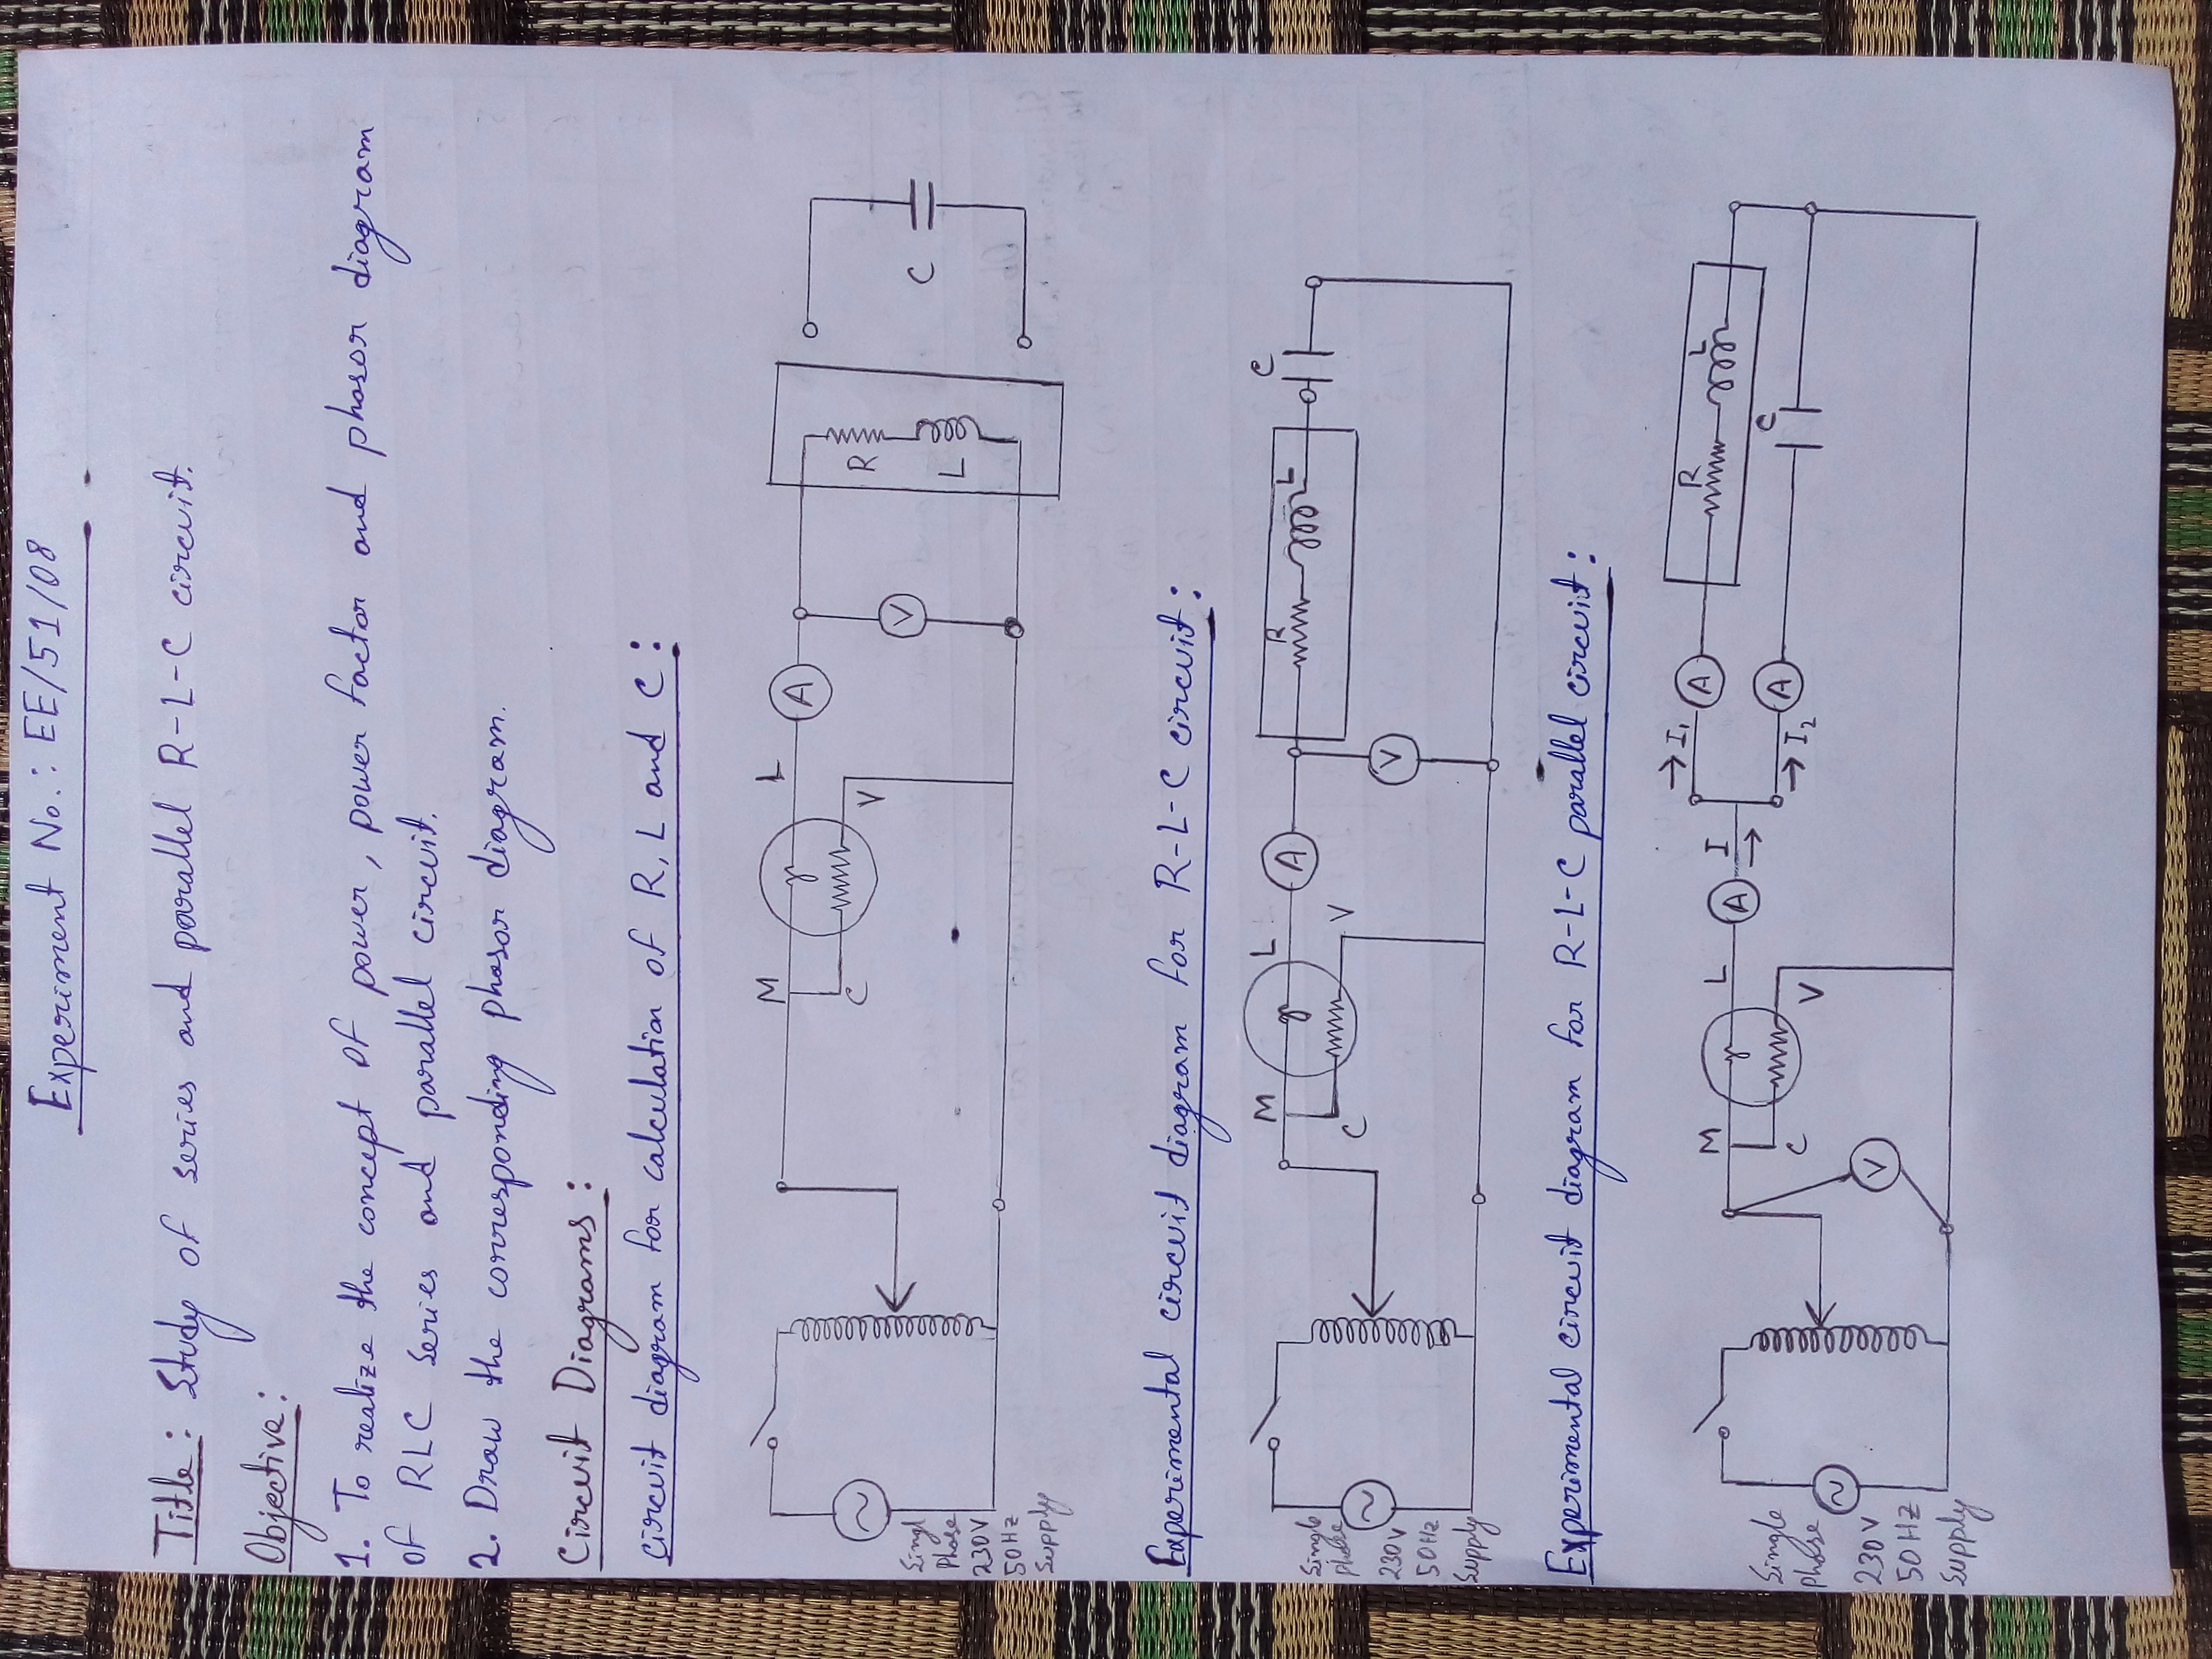 Experiment No.: EE/51/08
Title: Study of series and parallel R-L-C circuit.
Objective:
1. To realize the concept of power, power factor and phasor diagram
of RLC series and parallel circuit.
2. Draw the corresponding phasor diagram.
Circuit Diagrams:
circuit diagram for calculation of R, L and C:
M L A
C V
V
R
L
C
Singl
Phase
230V
50Hz
Supply
Experimental circuit diagram for R-L-C circuit:
M L A R L C
C V
V
Single
phase
230V
50Hz
Supply
Experimental circuit diagram for R-L-C parallel circuit:
→ I₁ A R L
M L A I
→ I₂ A C
C V
V
Single
phase
230V
50Hz
Supply